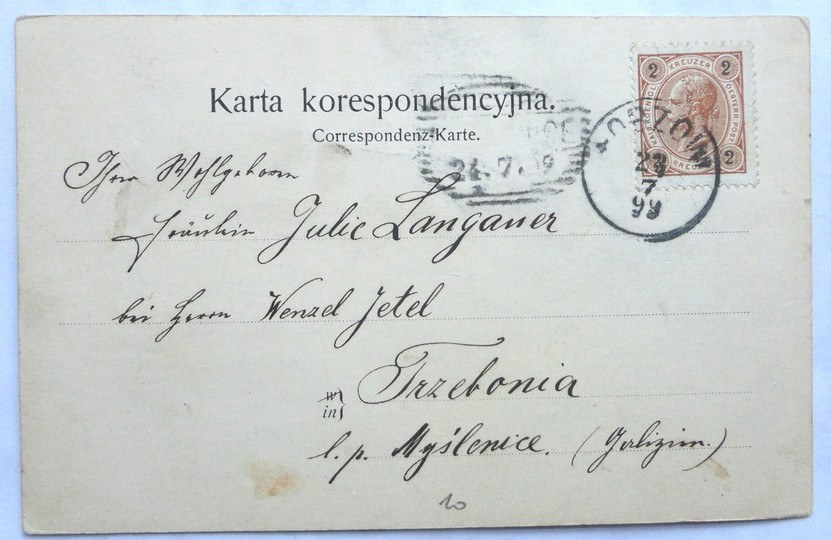 Karta korespondencyjna.
Correspondenz-Karte.
2 KREUZER 2
KREUZER 2
OESTERR. POST
27
7
99
24. 7. 99
Ihrer Wohlgeboren
Fräulein Julie Langauer
bei Herrn Wenzel Jetel
w
in} Trzebonia
l. p. Myślenice. (Galizien.)
10